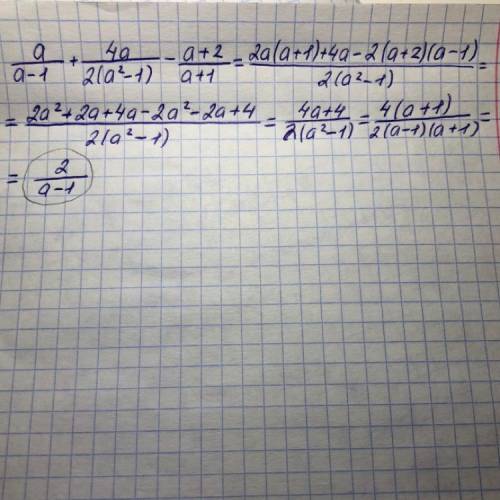 a/(a-1) + 4a/(2(a²-1)) - (a+2)/(a+1) = (2a(a+1)+4a-2(a+2)(a-1))/(2(a²-1)) =
= (2a²+2a+4a-2a²-2a+4)/(2(a²-1)) = (4a+4)/(2(a²-1)) = (4(a+1))/(2(a-1)(a+1)) =
= 2/(a-1)